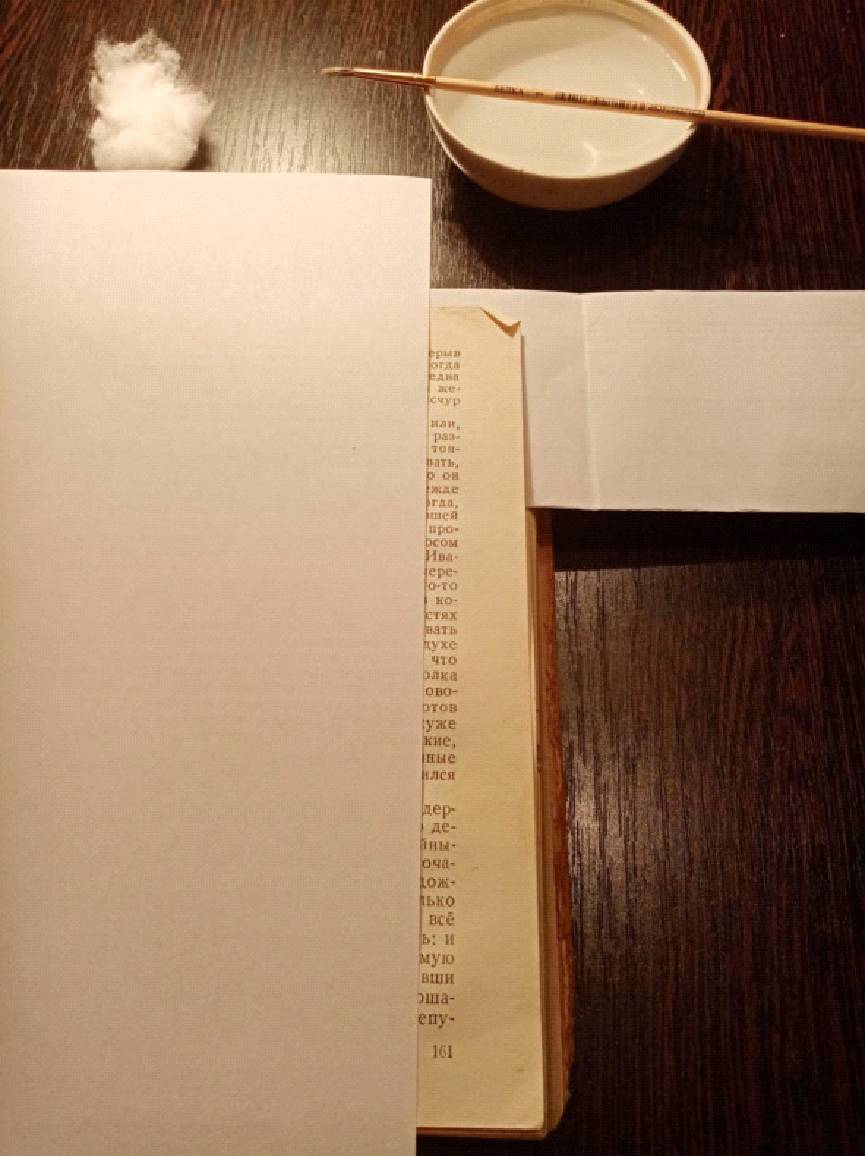 БЕЛКА
ерыв
огда
едва
же-
счур
или,
раз-
тон-
вать,
о он
ежде
огда,
вшей
про-
осом
Ива-
чере-
о-то
ко-
стях
вать
духе
что
олка
ово-
отов
хуже
кие,
нные
ился
дер-
де-
йны-
оча-
дож-
лько
всё
ь: и
мую
вши
оша-
епу-
161